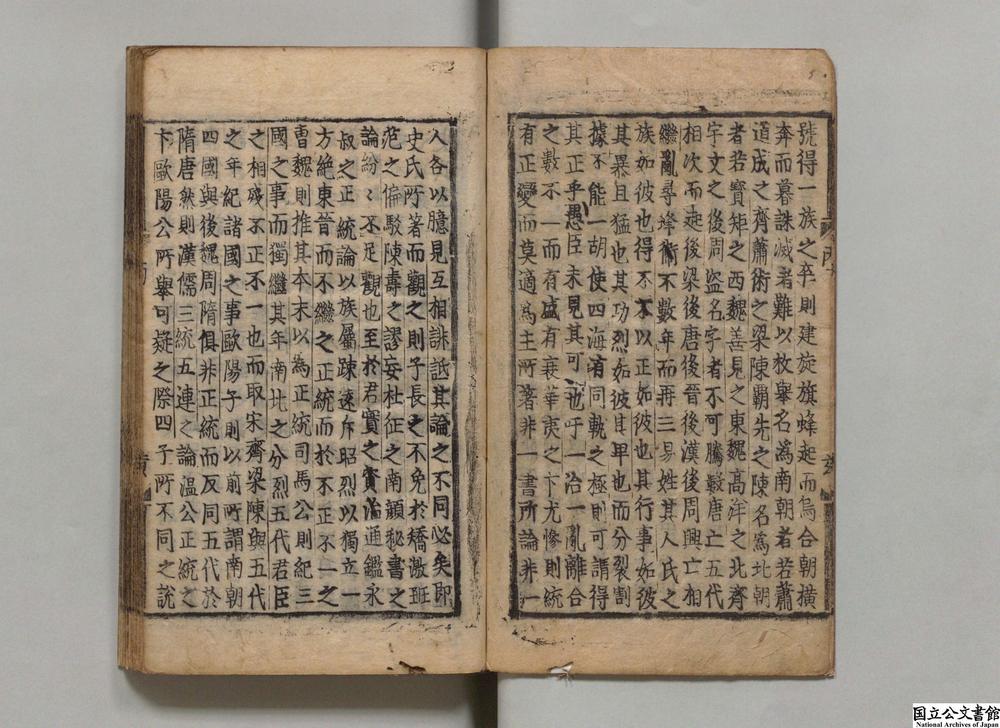 號得一族之卒則建旋旗蜂起而烏合朝橫
奔而暮誅滅者難以枚舉名爲南朝者若蕭
道成之齊蕭衍之梁陳霸先之陳名爲北朝
者若寳矩之西魏善見之東魏高洋之北齊
宇文之後周盜名字者不可騰數唐亡五代
相次而起後梁後唐後晉後漢後周興亡相
繼亂尋蜂衝不數年而再三易姓其人氏之
族如彼也得不不以正如彼也其行事如彼
其暴且猛也其功烈如彼其卑也而分裂割
據不能一胡使四海渚同軌之極則可謂得
其正乎愚臣未見其可也吁一治一亂離合
之數不一而有盛有衰華夷之卞尤慘則統
有正變而莫適爲主所著非一書所論非一
人各以臆見互相誹詆其論之不同必矣即
史氏所著而觀之則子長之不免於矯激班
范之偏駁陳壽之謬妄杜征之南顚秘書之
論紛〻不足觀也至於君實之資治通鑑永
叔之正統論以族屬踈遠斥昭烈以獨立一
方絶東晉而不繼之正統而於不正不一之
曺魏則推其本末以為正統司馬公則紀三
國之事而獨繼其年南北之分烈五代君臣
之相殘不正不一也而取宋齊梁陳與五代
之年紀諸國之事歐陽子則以前所謂南朝
四國與後魏周隋俱非正統而反同五代於
隋唐然則漢儒三統五連之論温公正統之
卞歐陽公所舉可疑之際四子所不同之說
国立公文書館
National Archives of Japan